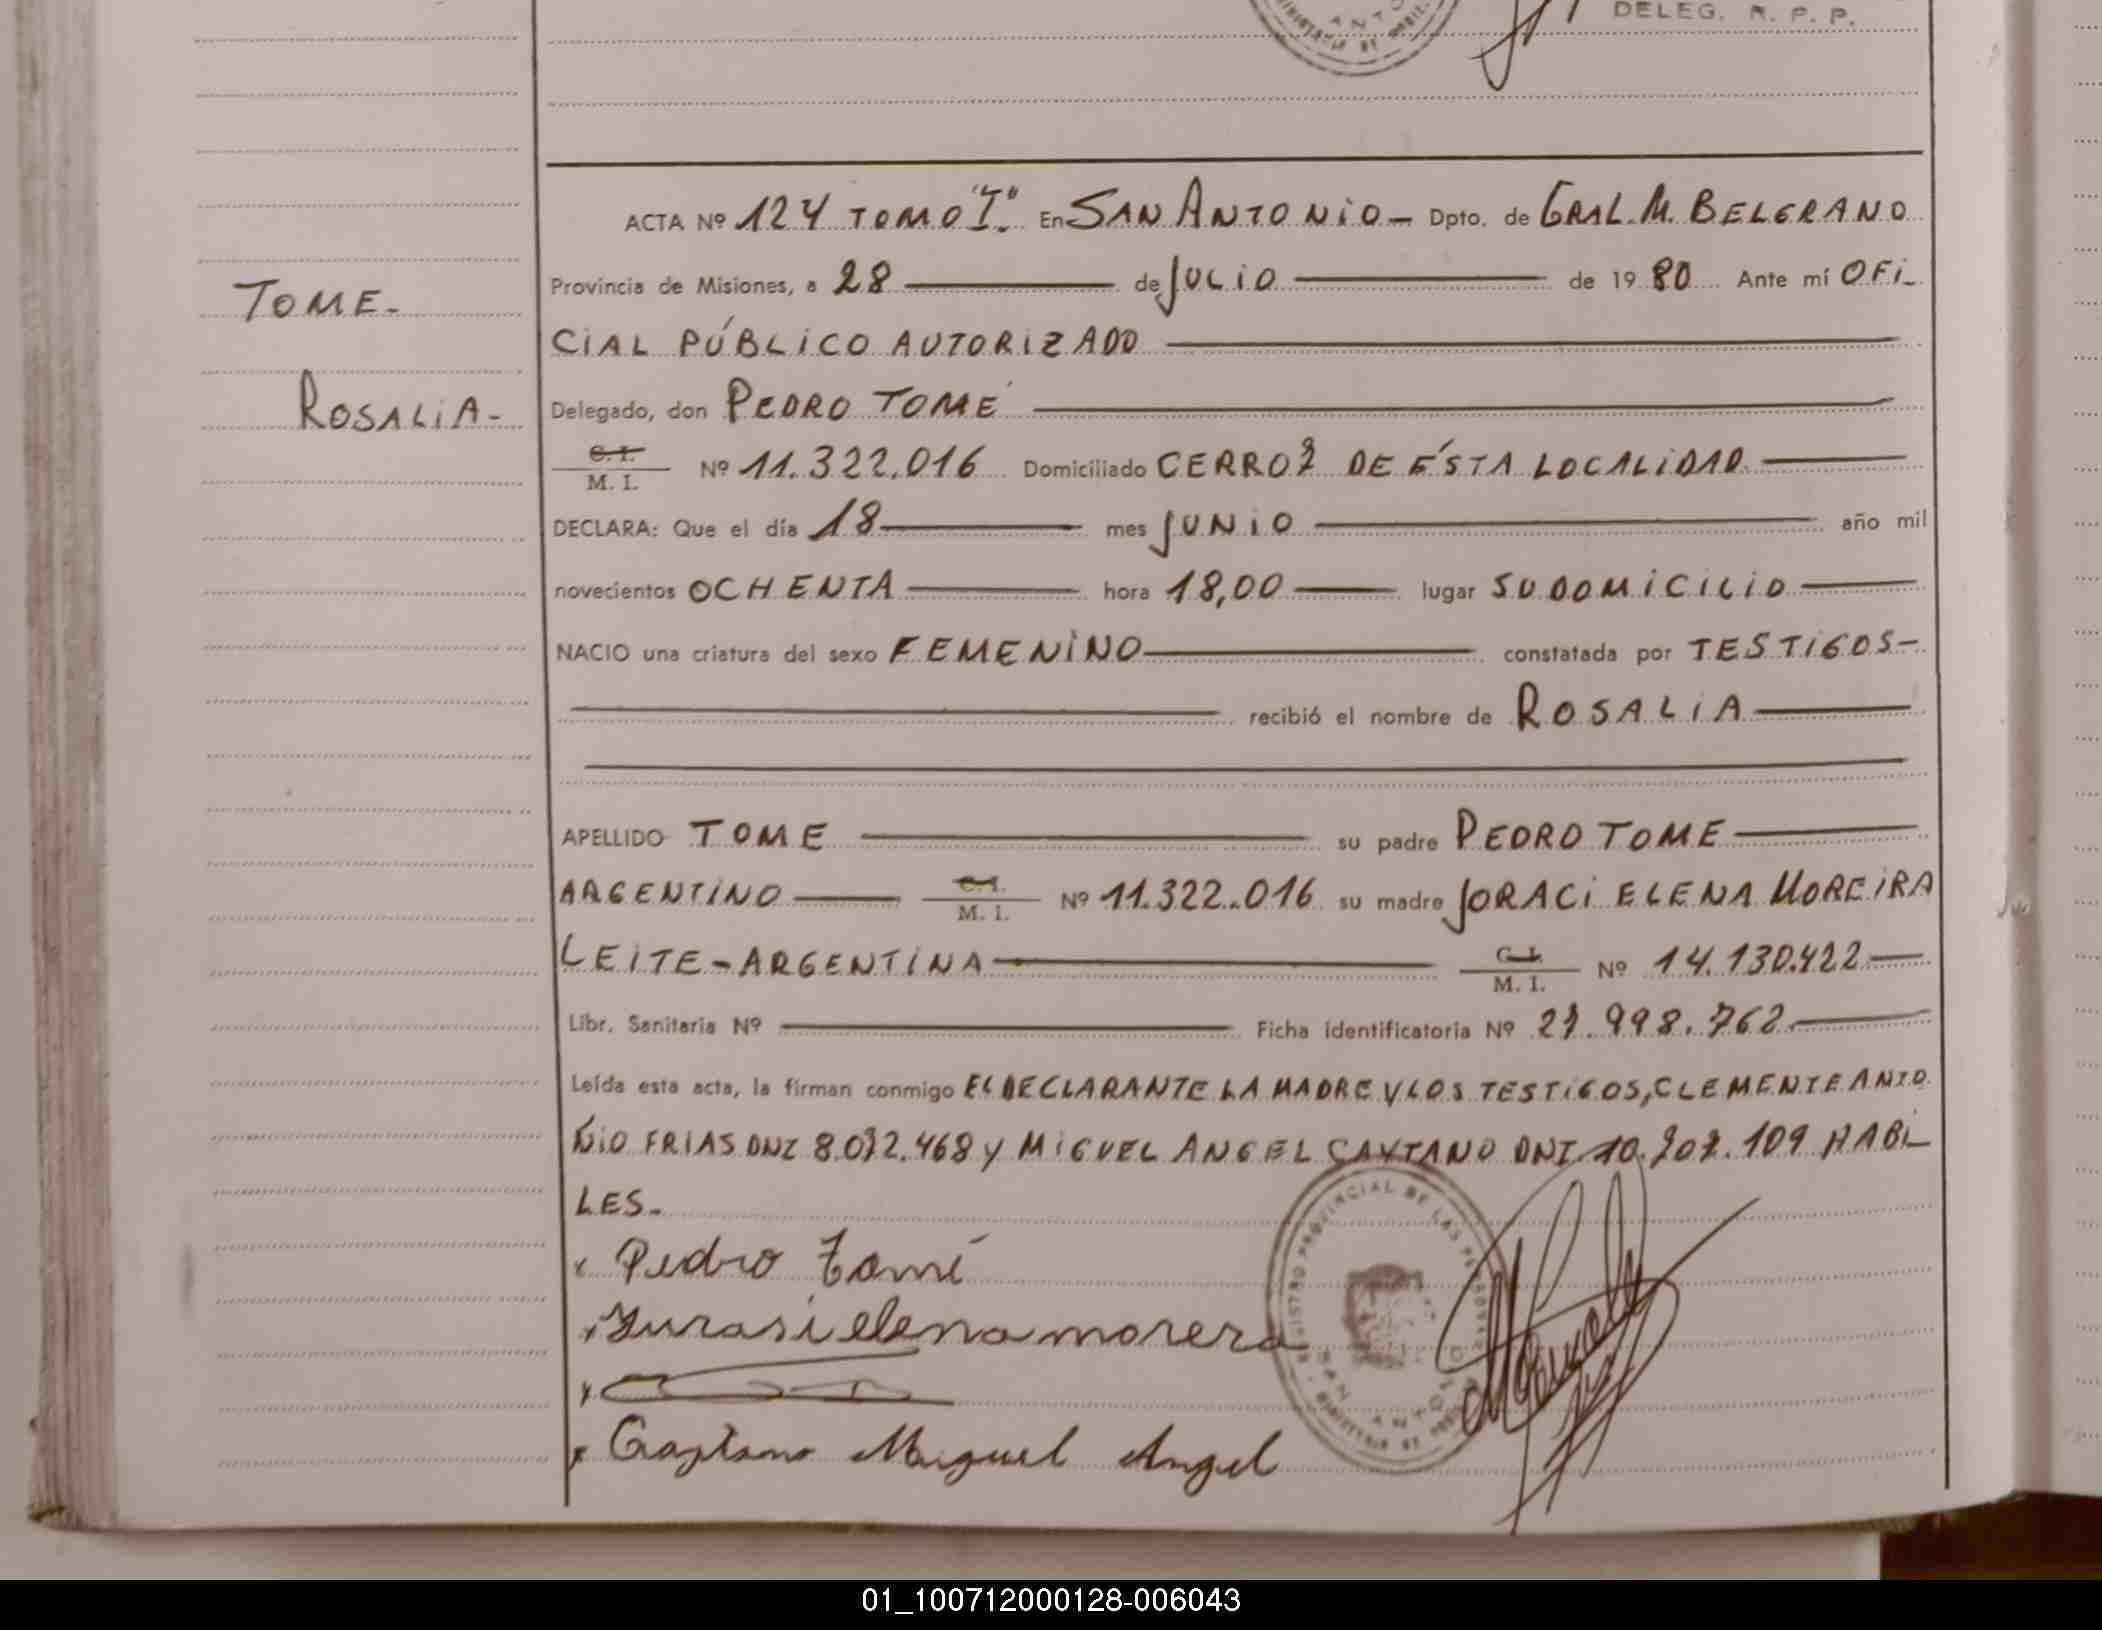 DELEG. R. P. P.
ACTA Nº 124 TOMO "I" En SAN ANTONIO - Dpto. de GRAL. M. BELGRANO
Provincia de Misiones, a 28 de JULIO de 1980 Ante mí OFI-
TOME-
CIAL PÚBLICO AUTORIZADO
ROSALIA-
Delegado, don PEDRO TOMÉ
C. I.
M. I. Nº 11.322.016 Domiciliado CERRO 7 DE ÉSTA LOCALIDAD
DECLARA: Que el día 18 mes JUNIO año mil
novecientos OCHENTA hora 18,00 lugar SU DOMICILIO
NACIO una criatura del sexo FEMENINO constatada por TESTIGOS-
recibió el nombre de ROSALIA
APELLIDO TOME su padre PEDRO TOME
ARGENTINO C. I. M. I. Nº 11.322.016 su madre JORACI ELENA MOREIRA
LEITE - ARGENTINA C. I. M. I. Nº 14.130.422
Libr. Sanitaria Nº Ficha identificatoria Nº 27.998.762
Leída esta acta, la firman conmigo EL DECLARANTE LA MADRE Y LOS TESTIGOS, CLEMENTE ANTO
NIO FRIAS DNI 8.072.468 y MIGUEL ANGEL CAYTANO DNI 10.707.109 HABI-
LES.
x Pedro Tomé
x Jurasi elena morera
x
x Caytano Miguel Angel
REGISTRO PROVINCIAL DE LAS PERSONAS
SAN ANTONIO
01_100712000128-006043